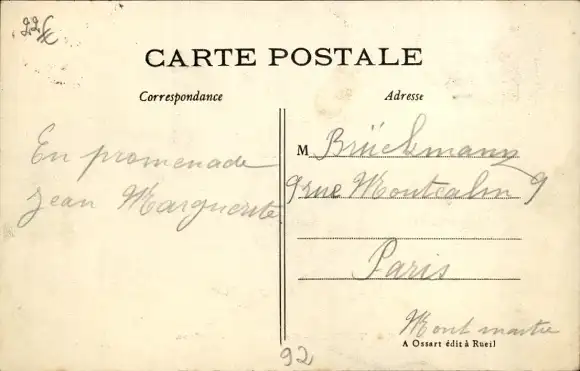 CARTE POSTALE
Correspondance
Adresse
En promenade
Jean Marguerite
M Brückmann
9 rue Montcalm 9
Paris
Montmartre
A Ossart édit à Rueil
92